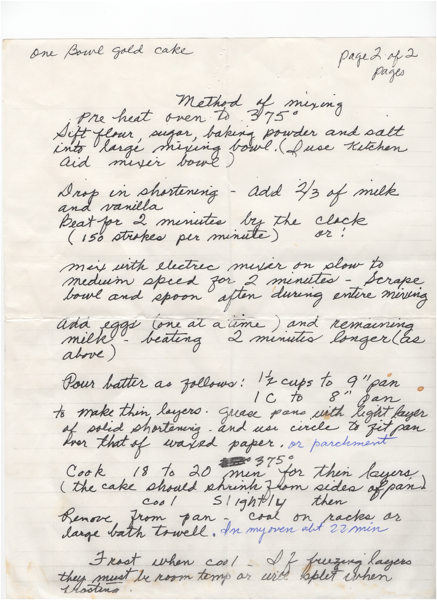 One Bowl gold cake
page 2 of 2
pages
Method of mixing
Pre heat oven to 375°
Sift flour, sugar, baking powder and salt
into large mixing bowl. (I use Kitchen
Aid mixer bowl)
Drop in shortening - add 2/3 of milk
and vanilla
Beat for 2 minutes by the clock
(150 strokes per minute) or:
mix with electric mixer on slow to
medium speed for 2 minutes - Scrape
bowl and spoon often during entire mixing
Add eggs (one at a time) and remaining
milk - beating 2 minutes longer (as
above)
Pour batter as follows: 1½ cups to 9" pan
1 C to 8" pan
to make thin layers. grease pans with light layer
of solid shortening. and use circle to fit pan
over that of waxed paper. or parchment
375°
Cook 18 to 20 min for thin layers
(the cake should shrink from sides of pan)
cool slightly then
Remove from pan - cool on racks or
large bath towell. In my oven abt 22 min
Frost when cool - If freezing layers
they must be room temp or will split when
frosting.